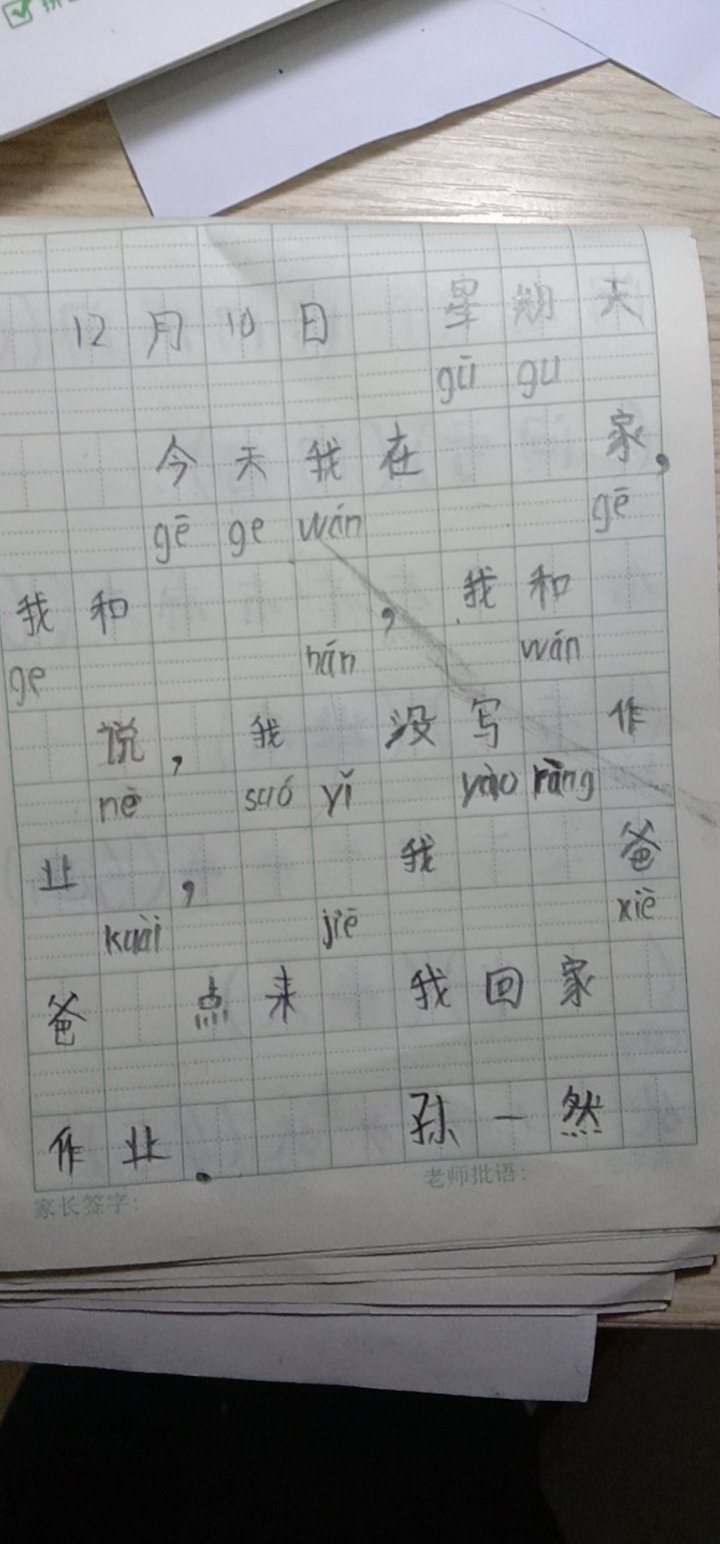 12月10日 星期天
gū gu
今天我在 家,
gē ge wán gē
我和 , 我和
ge hán wán
说, 我 没写 作
nè suó yǐ yào ràng
业, 我 爸
kuài jiē xiě
爸 点来 我回家
作业. 孙一然
家长签字: 老师批语: